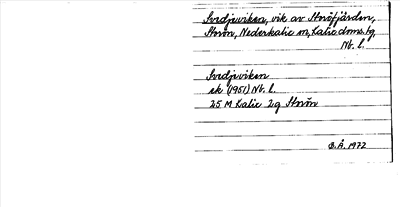 Svedjeviken, vik av Storöfjärden,
Storön, Nederkalix sn, Kalix dms. tg
Nb. l.
Svedjeviken
ek (1951) Nb. l.
25 M Kalix 2g Storön
B.Å. 1972